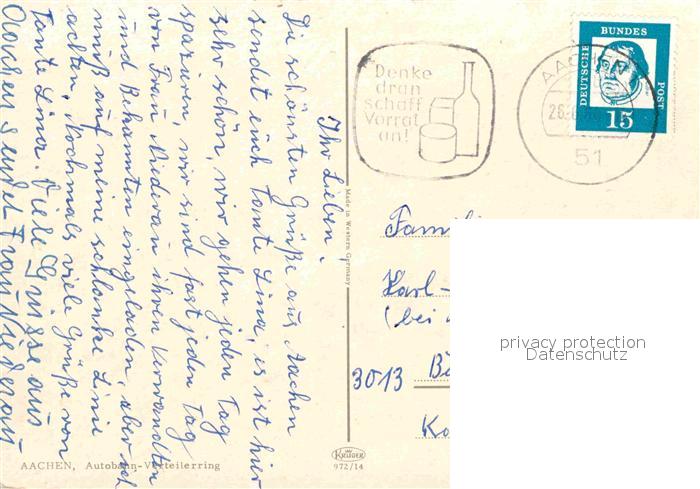 Ihr Lieben!
Die schönsten Grüße aus Aachen
sendet euch Tante Lina, es ist hier
sehr schön, wir gehen jeden Tag
spazieren, wir sind fast jeden Tag
von Frau Niederau ihren Verwandten
und Bekannten eingeladen, aber ich
muß auf meine schlanke Linie
achten, Nochmals viele Grüße von
Tante Lina. Viele Grüsse aus
Aachen sendet Frau Niederau
AACHEN, Autobahn-Verteilerring
Made in Western Germany
KRÜGER
972/14
Denke
dran
schaff
Vorrat
an!
AACHEN
51
DEUTSCHE BUNDESPOST
15
Famili
Karl-
(bei
3013
privacy protection
Datenschutz